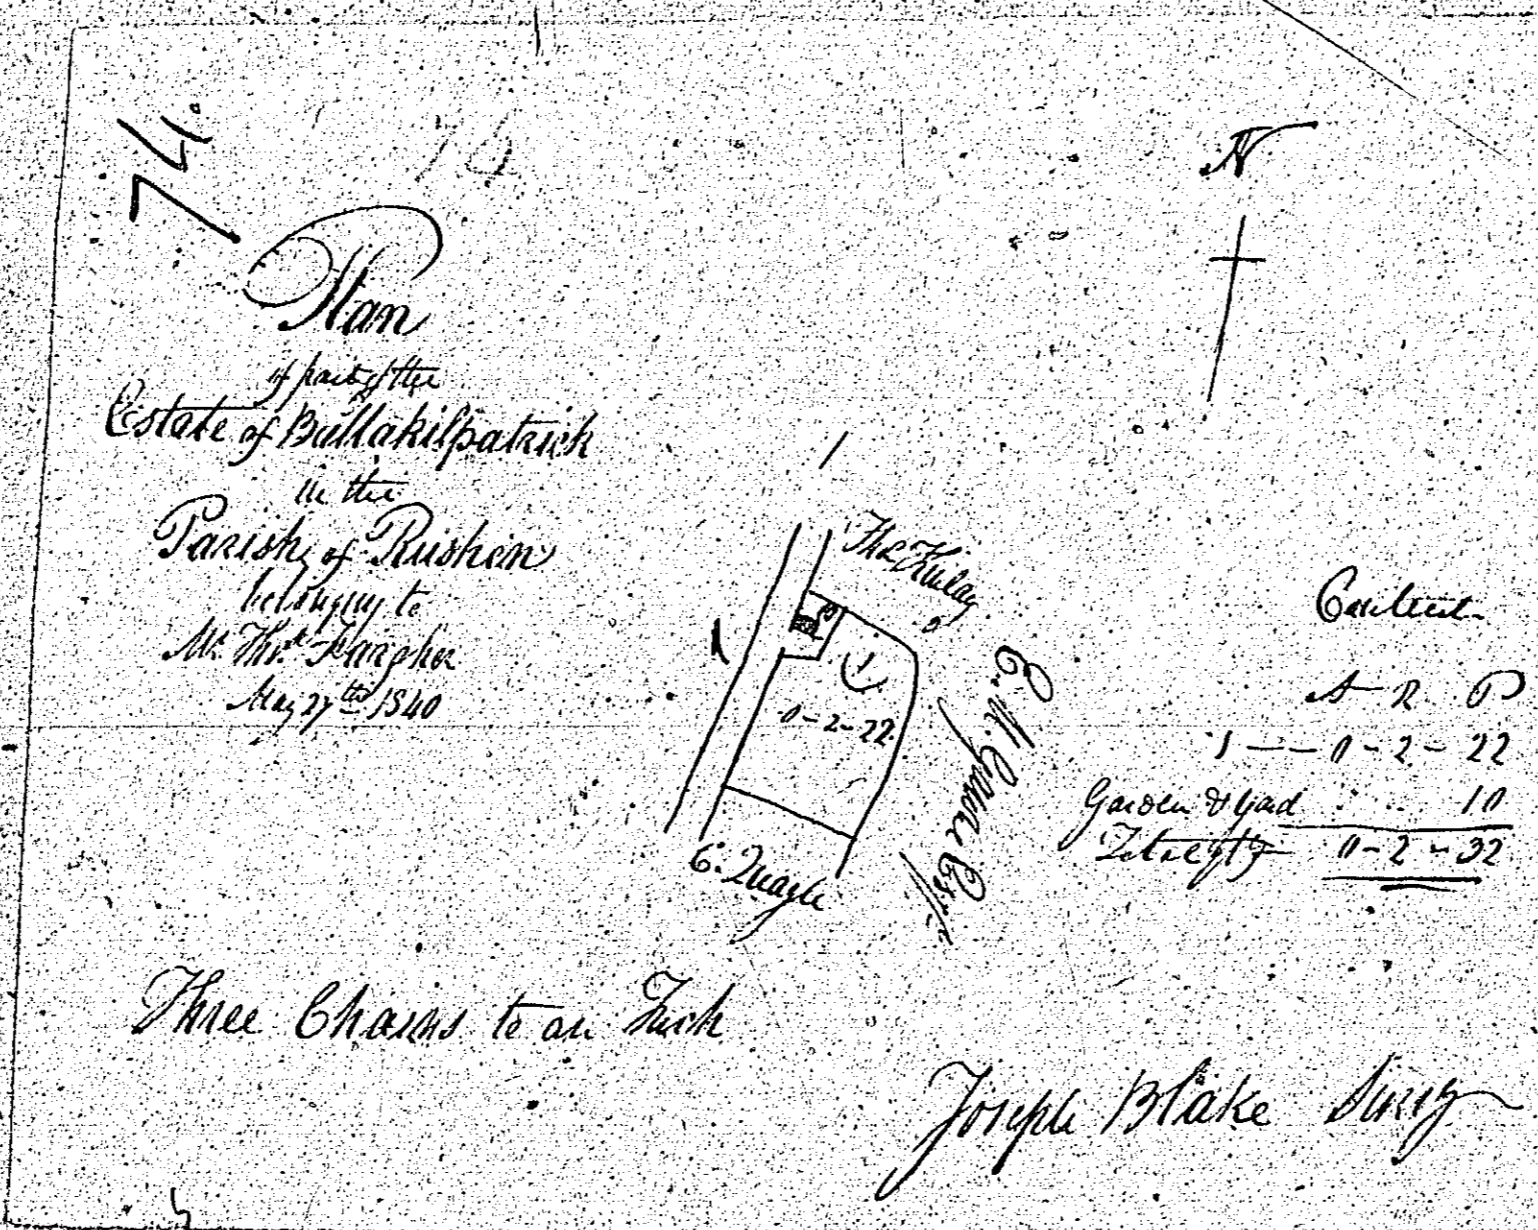 74.
N
Plan
of part of the
Estate of Ballakilpatrick
in the
Parish of Rushen
belonging to
Mr. Thos. Kargher
May 27th 1840
Thos
1
0-2-22
E. M. Gawne Esqr.
C. Quayle
Content
A R P
1 — 0 - 2 - 22
Garden & Yard 10
Total qty 0 - 2 - 32
Three Chains to an Inch
Joseph Blake Survr